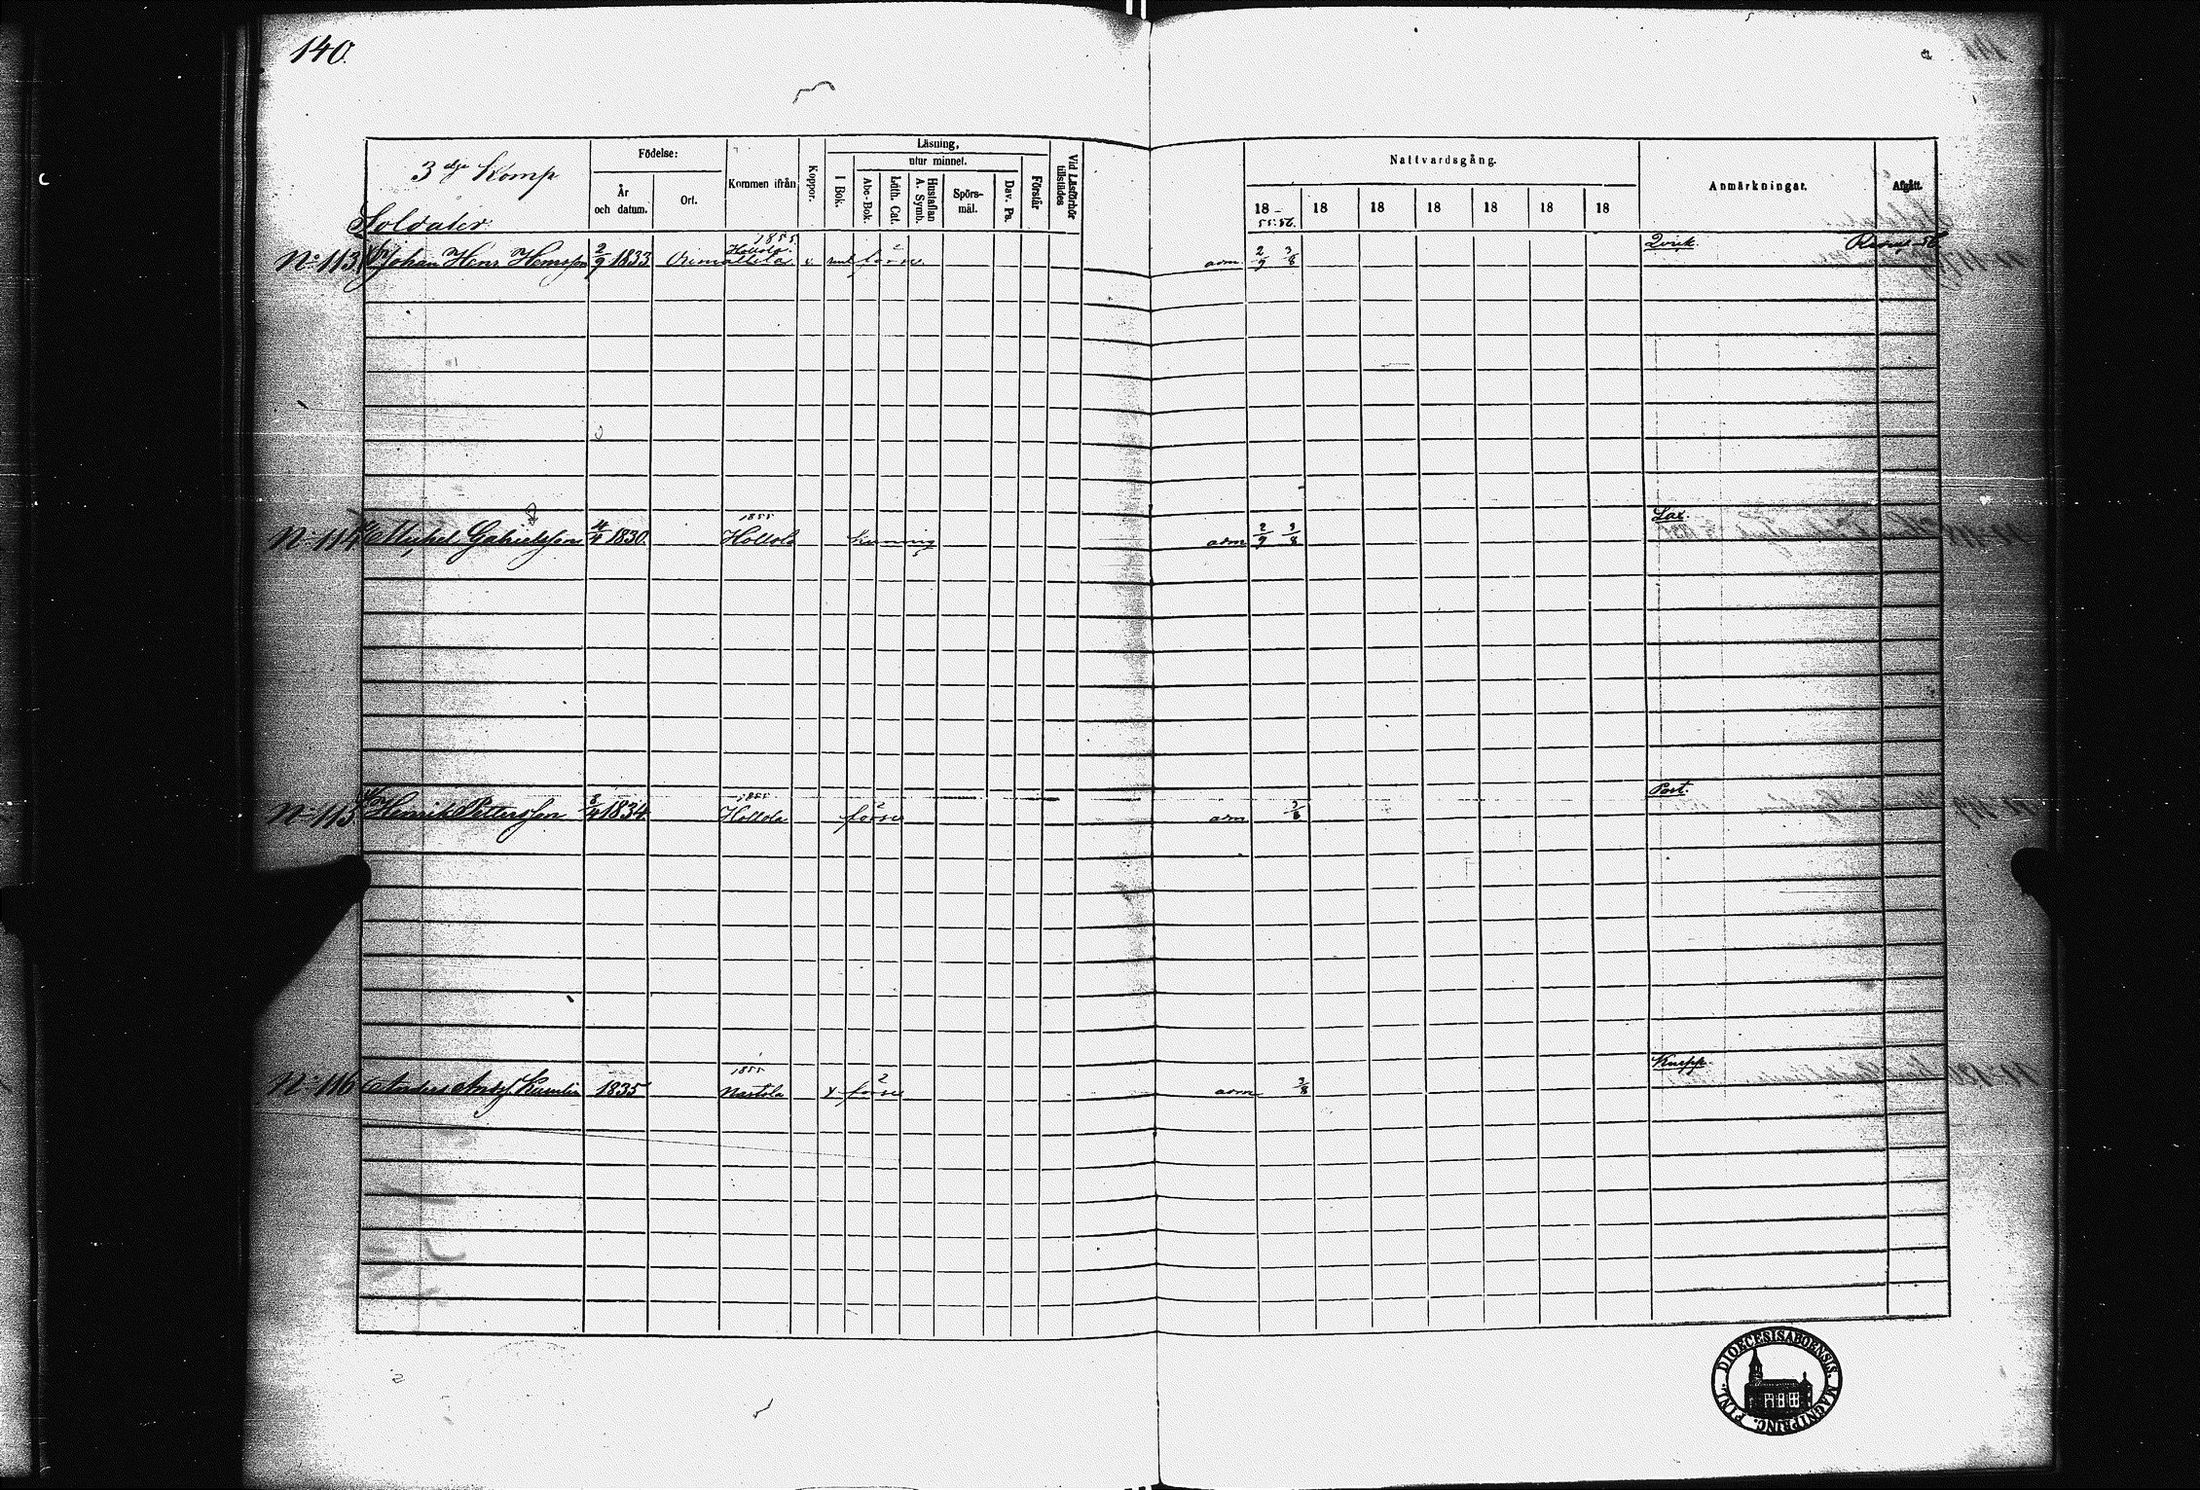 140.
3 dje Komp
Soldater
Födelse:
År och datum.
Ort.
Kommen ifrån
Koppor.
Läsning,
utur minnet.
I Bok.
Abc-Bok.
Luth. Cat.
Hustaflan A. Symb.
Spörs-mål.
Dav. Ps.
Förstår
Vid Läsförhör tillstädes
Nattvardsgång.
18 - 18 18 18 18 18 18
55. 56.
Anmärkningar.
Afgått.
No 113 Johan Henr Henrsson 2/9 1833 Orimattila 1855 Hollola adm 2/9 3/8 Qvick.
No 114 Michel Gabrielsson 4/4 1830. 1855 Hollola adm 2/9 3/8 Lax
No 115 Henrik Pettersson 1834 1855 Hollola adm 3/8 Post.
No 116 Anders 1835 1855 Nastola adm 3/8 Knapp.
DIOECESIS ABOENSIS. MAGNI PRINC. FINL.